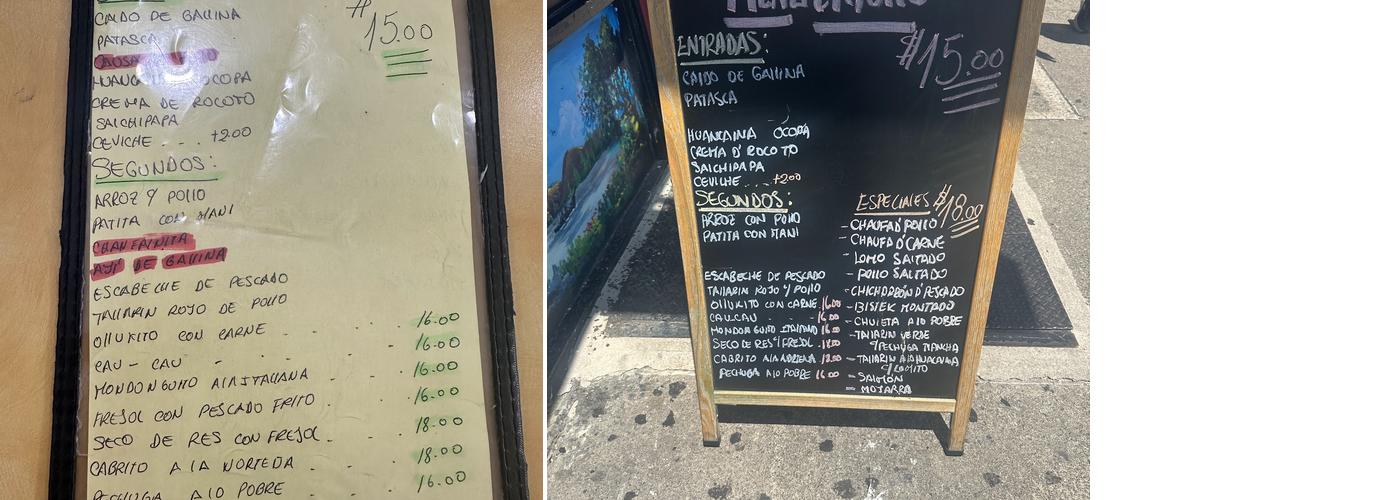 CALDO DE GALLINA
$15.00
PATASCA
CAUSA
HUANCAINA OCOPA
CREMA DE ROCOTO
SALCHIPAPA
CEVICHE . . . +2.00
SEGUNDOS:
ARROZ Y POLLO
PATITA CON MANI
CHANFAINITA
AJI DE GALLINA
ESCABECHE DE PESCADO
TALLARIN ROJO DE POLLO
OLLUKITO CON CARNE - - - 16.00
CAU - CAU - - - 16.00
MONDONGUITO A LA ITALIANA - - 16.00
FREJOL CON PESCADO FRITO. - - 16.00
SECO DE RES CON FREJOL. - - 18.00
CABRITO A LA NORTEÑA . - . 18.00
PECHUGA A LO POBRE . . . 16.00
$15.00
ENTRADAS:
CALDO DE GALLINA
PATASCA
HUANCAINA OCOPA
CREMA D' ROCOTO
SALCHIPAPA
CEVICHE . . . +2.00
SEGUNDOS:
ARROZ CON POLLO
PATITA CON MANI
ESCABECHE DE PESCADO
TALLARIN ROJO Y POLLO
OLLUKITO CON CARNE 16.00
CAU-CAU - 16.00
MONDONGUITO ITALIANO 16.00
SECO DE RES Y FREJOL . 18.00
CABRITO A LA NORTEÑA . 18.00
PECHUGA A LO POBRE 16.00
ESPECIALES $18.00
- CHAUFA D' POLLO
- CHAUFA D' CARNE
- LOMO SALTADO
- POLLO SALTADO
- CHICHARRON D' PESCADO
- BISTEK MONTADO
- CHULETA A LO POBRE
- TALLARIN VERDE
Y PECHUGA PLANCHA
- TALLARIN A LA HUANCAINA
Y LOMITO
- SALMON
- MOJARRA